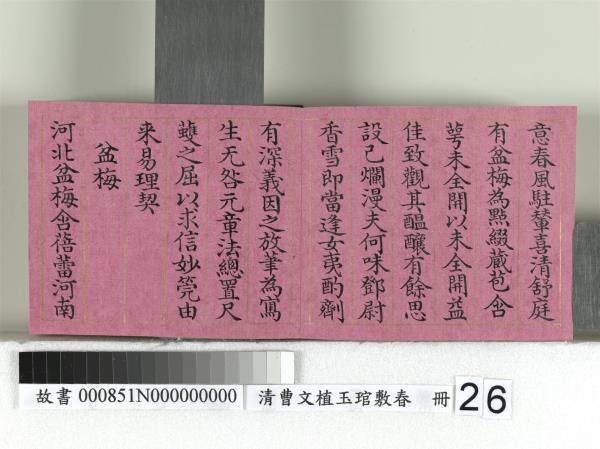 意春風駐輦喜清舒庭
有盆梅為點綴蔵苞含
萼未全開以未全開益
佳致觀其醞釀有餘思
設已爛漫夫何味鄧尉
香雪即當逢女夷酌劑
有深義因之放筆為寫
生无咎元章法總置尺
蠖之屈以求信妙筦由
来易理契
盆梅
河北盆梅含蓓蕾河南
故書 000851N000000000
清曹文植玉琯敷春 冊 26